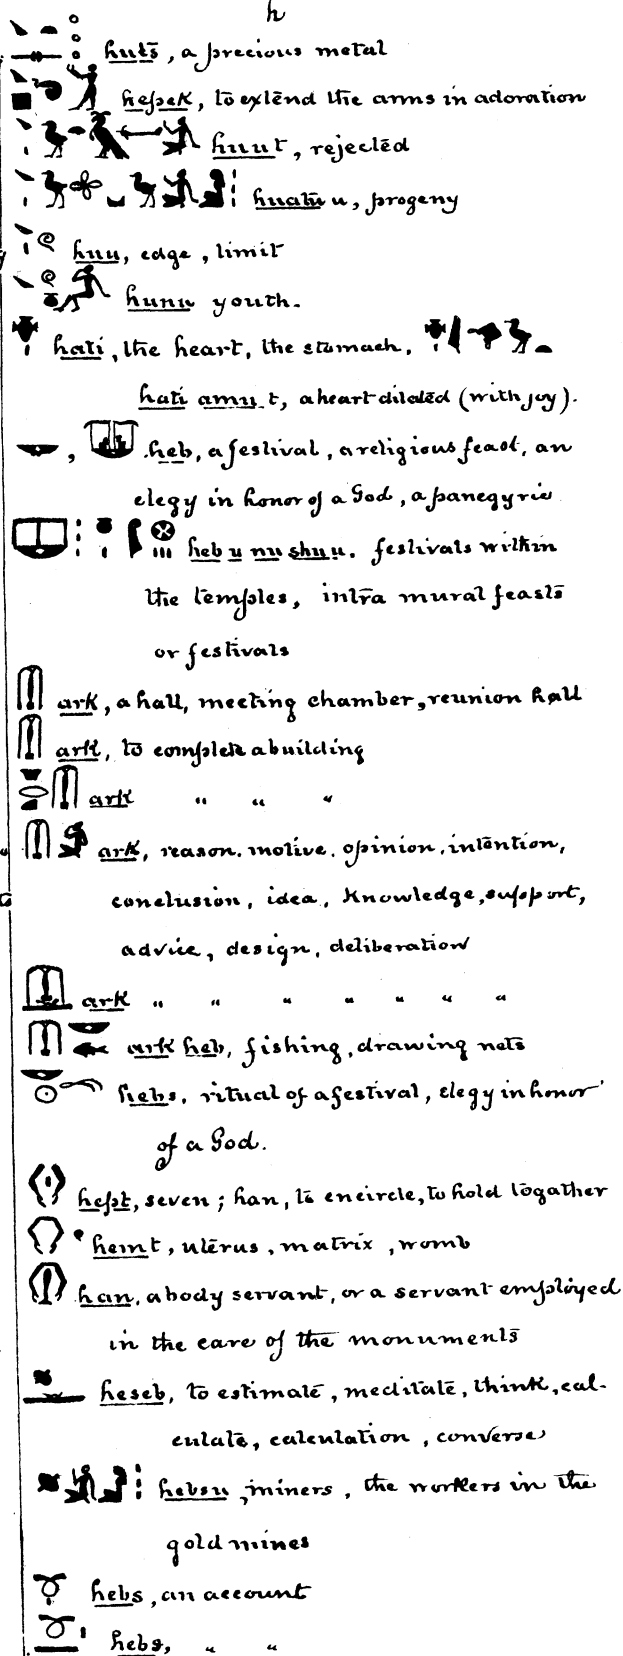 h
huts, a precious metal
hepek, to extend the arms in adoration
huut, rejected
huatu u, progeny
huu, edge, limit
hunu youth.
hati, the heart, the stomach,
hati amu t, a heart dilated (with joy).
, heb, a festival, a religious feast, an
elegy in honor of a God, a panegyric
heb u nu shu u. festivals within
the temples, intra mural feasts
or festivals
ark, a hall, meeting chamber, reunion hall
ark, to complete a building
ark " " "
ark, reason, motive, opinion, intention,
conclusion, idea, knowledge, support,
advice, design, deliberation
ark " " " " " " "
ark heb, fishing, drawing nets
hebs, ritual of a festival, elegy in honor
of a God.
hept, seven; han, to encircle, to hold together
hemt, uterus, matrix, womb
han, a body servant, or a servant employed
in the care of the monuments
heseb, to estimate, meditate, think, cal-
culate, calculation, converse
hebsu, miners, the workers in the
gold mines
hebs, an account
hebs, " "